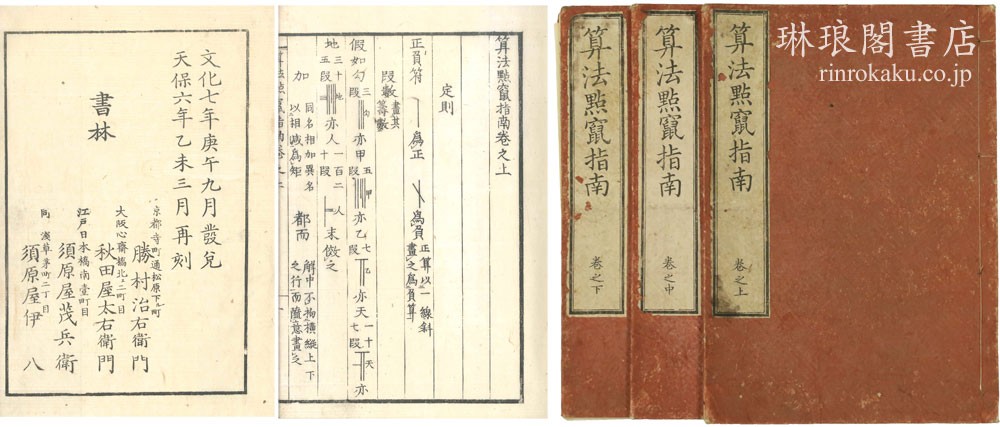 文化七年庚午九月發兌
天保六年乙未三月再刻
書林
京都寺町通松原下ル町
勝村治右衛門
大阪心齋橋北ニ町目
秋田屋太右衛門
江戸日本橋南壹町目
須原屋茂兵衛
同 淺草茅町二丁目
須原屋伊八
算法點竄指南卷之上
定則
正負符 爲正 爲負
正算以一線斜
畫之爲負算
段數
畫其
籌數
假如勾三段 亦甲五段 亦乙七段 亦天一十七段 亦
地三十五段 亦人一百二十段 末倣之
加
同名相加異名
以相減爲矩
都而
解中不拘横縱上下
之行而隨意畫之
琳琅閣書店
rinrokaku.co.jp
算法點竄指南
卷之上
算法點竄指南
卷之中
算法點竄指南
卷之下